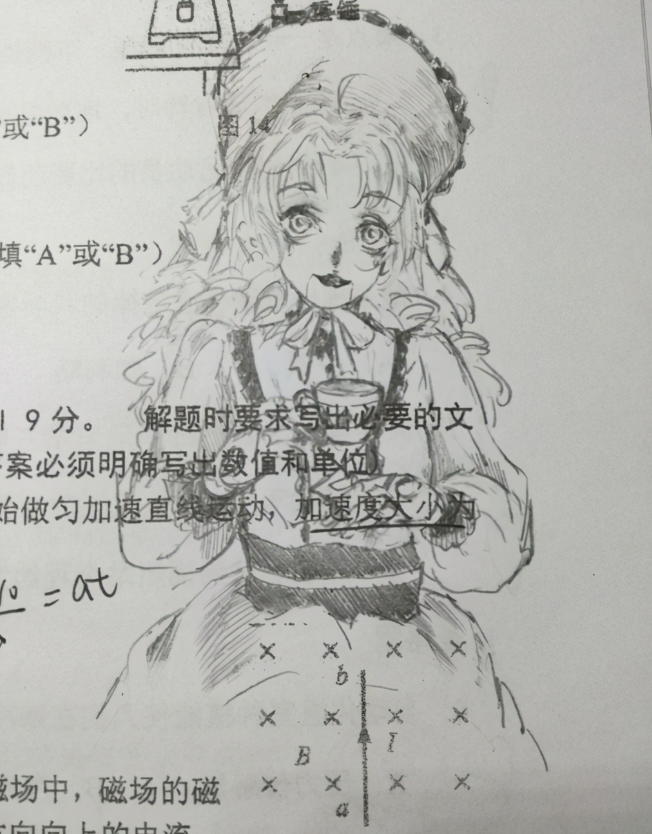 重锤
图 14
或“B”）
填“A”或“B”）
19分。 解题时要求写出必要的文
答案必须明确写出数值和单位）
始做匀加速直线运动，加速度大小为
= at
b
B
I
a
磁场中，磁场的磁
方向向上的电流